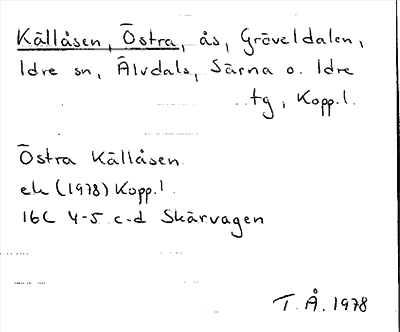 Källåsen, Östra, ås, Gröveldalen,
Idre sn, Älvdals, Särna o. Idre
tg, Kopp.l.
Östra Källåsen
ek (1978) Kopp.l
16C 4-5 c-d Skärvagen
T. Å. 1978